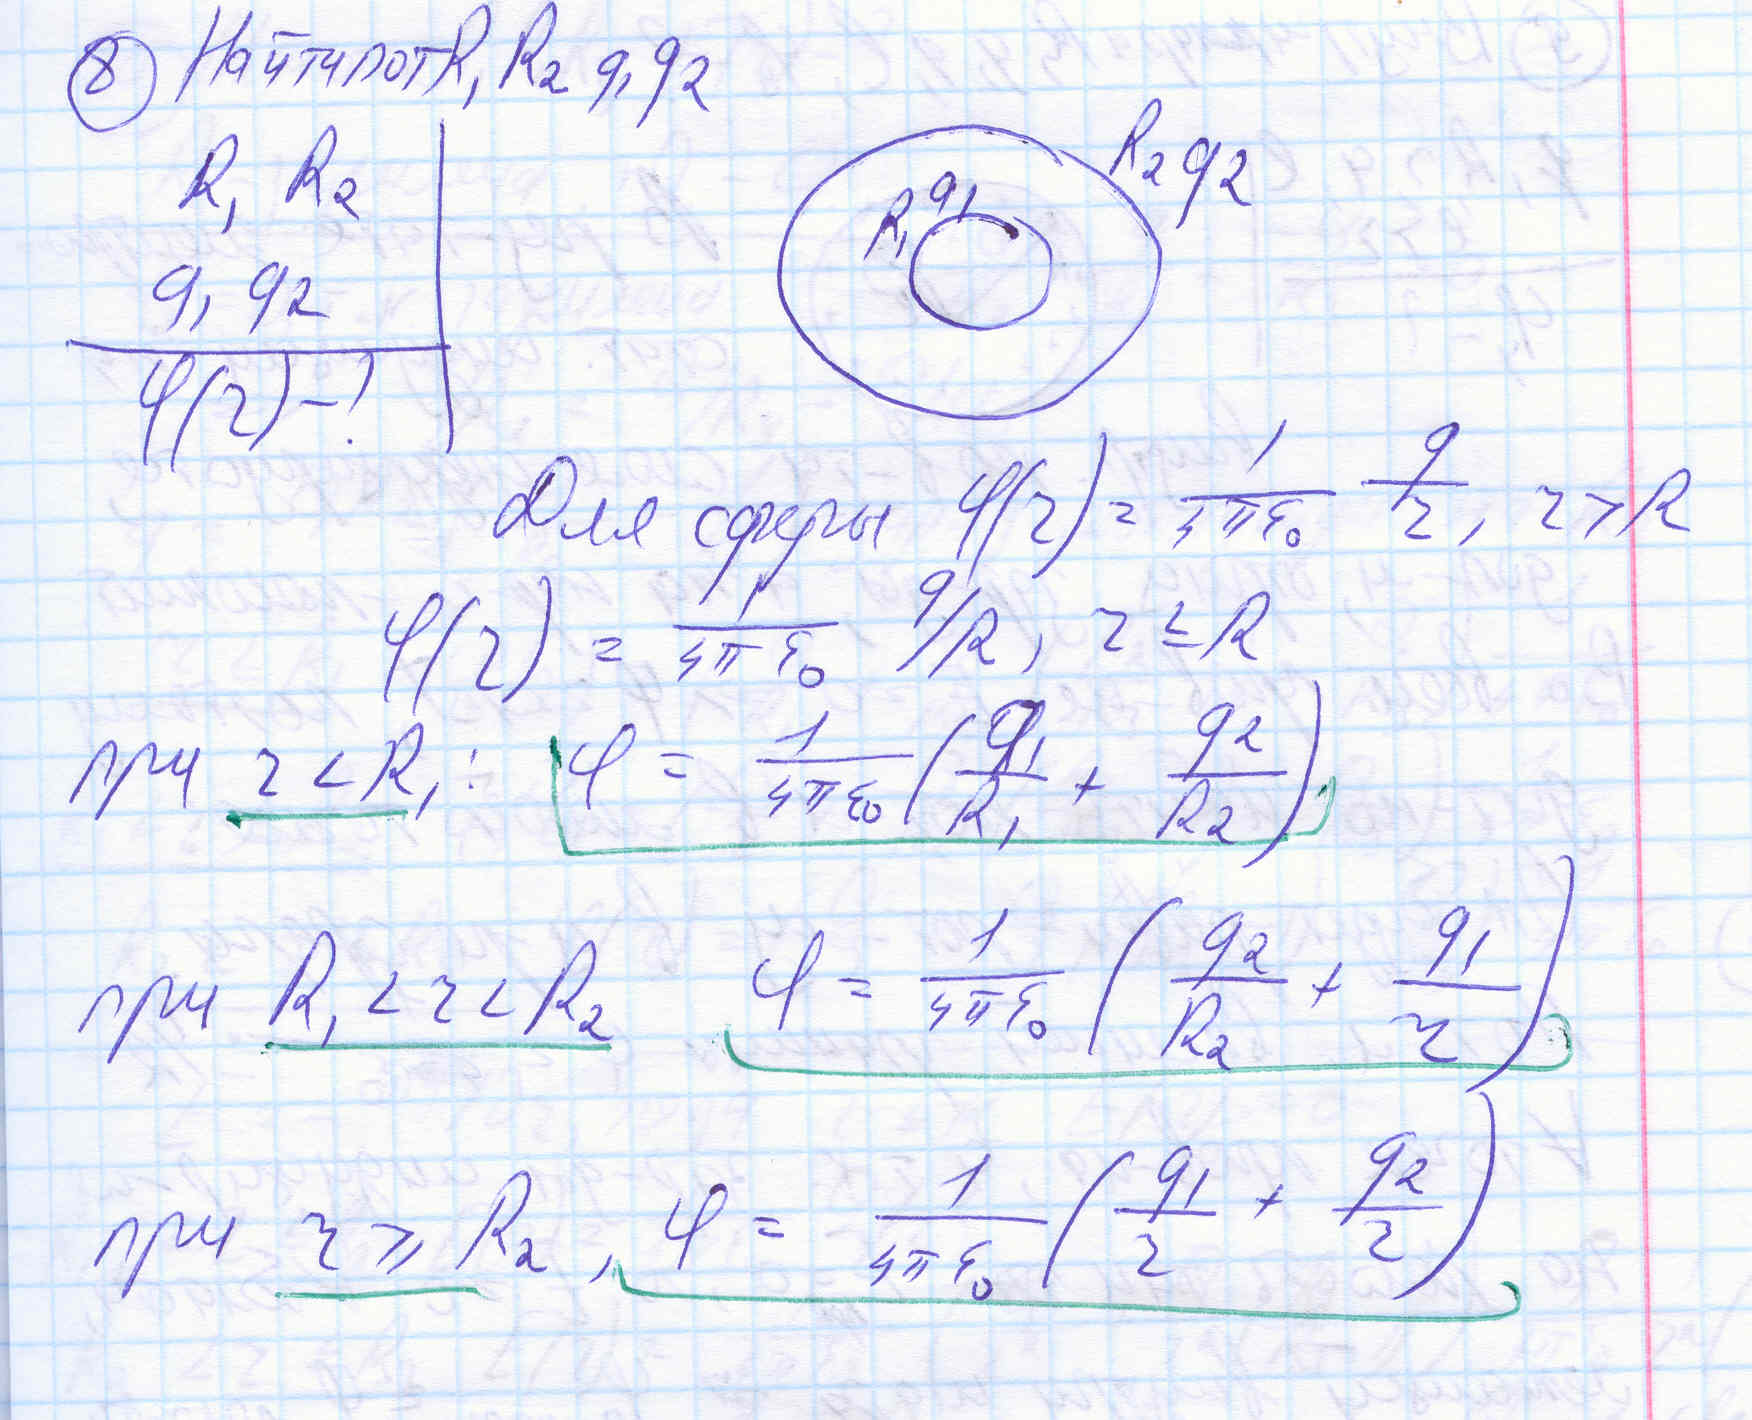 8 Найти пот R₁ R₂ q₁ q₂
R₁ R₂
q₁ q₂
φ(r) – ?
R₂ q₂
R₁ q₁
Для сферы φ(r) = 1/(4πε₀) q/r, r > R
φ(r) = 1/(4πε₀) q/R, r ≤ R
при r < R₁: φ = 1/(4πε₀) (q₁/R₁ + q₂/R₂)
при R₁ < r < R₂ φ = 1/(4πε₀) (q₂/R₂ + q₁/r)
при r ⩾ R₂, φ = 1/(4πε₀) (q₁/r + q₂/r)